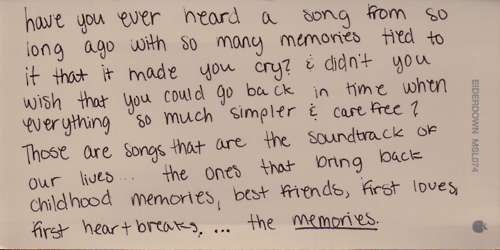 have you ever heard a song from so
long ago with so many memories tied to
it that it made you cry? & didn't you
wish that you could go back in time when
everything so much simpler & care free?
Those are songs that are the soundtrack of
our lives... the ones that bring back
childhood memories, best friends, first loves,
first heartbreaks, ... the memories.
EIDERDOWN MSL074